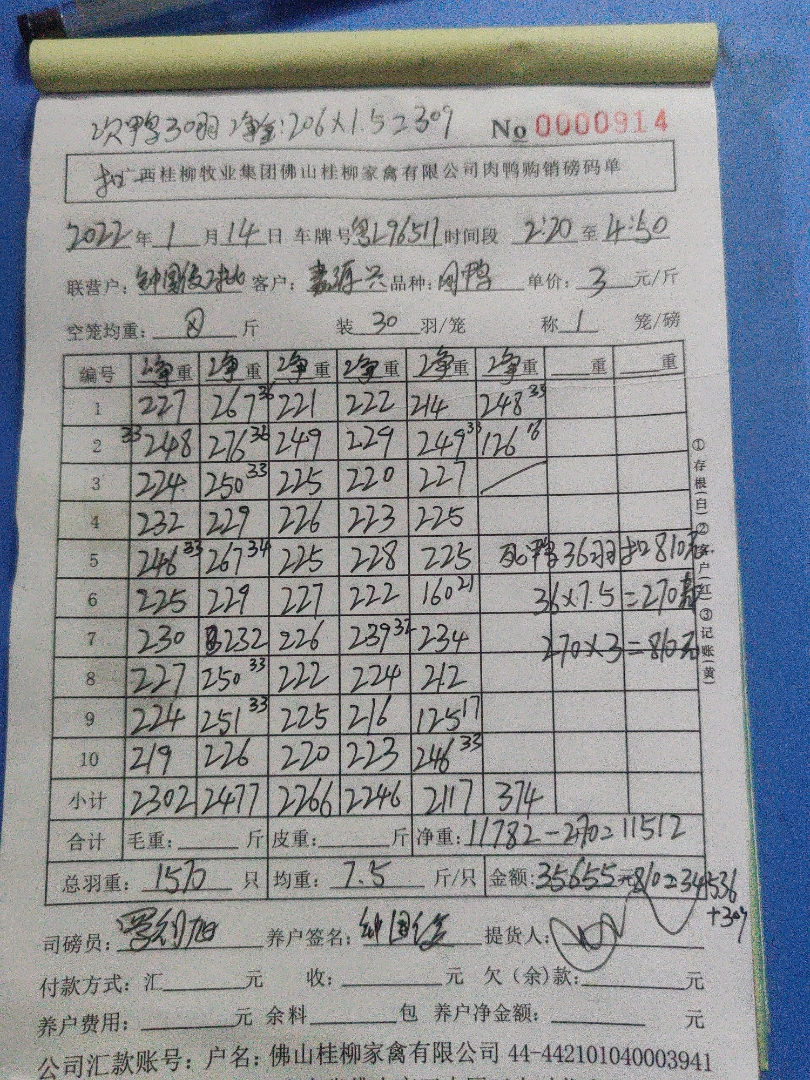 次鸭30羽 净重:206×1.5=309 No 0000914
扣 广西桂柳牧业集团佛山桂柳家禽有限公司肉鸭购销磅码单
2022年 1 月 14 日 车牌号 粤L96517 时间段 2:20 至 4:50
联营户: 钟国 客户: 源兴 品种: 肉鸭 单价: 3 元/斤
空笼均重: 8 斤 装 30 羽/笼 称 1 笼/磅
编号 净重 净重 净重 净重 净重 净重 重 重
1 227 267 36 221 222 214 248 33
2 33 248 276 36 249 229 249 33 126 16
3 224 250 33 225 220 227
4 232 229 226 223 225
5 246 33 267 34 225 228 225 死鸭36羽扣810元
6 225 229 227 222 160 21 36×7.5=270
7 230 232 226 239 32 234 270×3=810元
8 227 250 33 222 224 212
9 224 251 33 225 216 125 17
10 219 226 220 223 246 33
小计 2302 2477 2266 2246 2117 374
合计 毛重: 斤 皮重: 斤 净重: 11782-270=11512
总羽重: 1570 只 均重: 7.5 斤/只 金额: 35655-810=34536
+309
司磅员: 养户签名: 钟国 提货人:
付款方式: 汇 元 收: 元 欠(余)款: 元
养户费用: 元 余料 包 养户净金额: 元
公司汇款账号: 户名: 佛山桂柳家禽有限公司 44-442101040003941
①存根(自)②客户(红)③记账(黄)